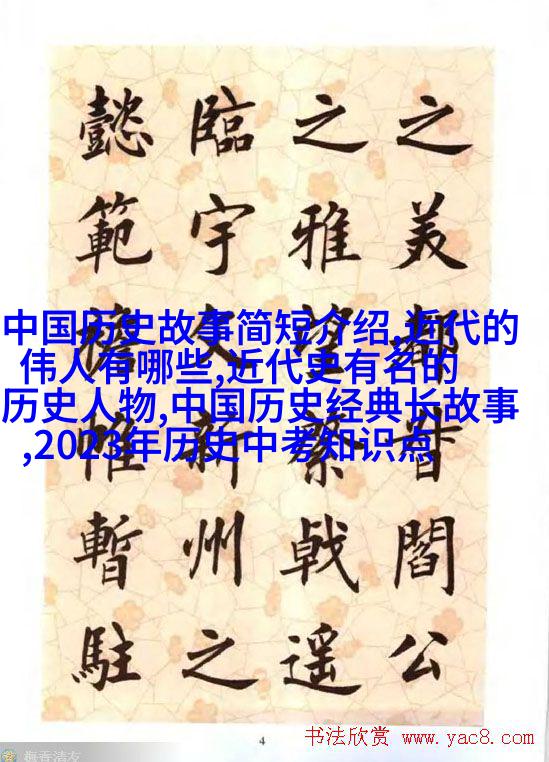 之美都督閻公
之雅望棨戟遥
臨宇文新州之
懿範襜帷暫駐
中国历史故事简短介绍,近代的
伟人有哪些,近代史有名的
历史人物,中国历史经典长故事
,2023年历史中考知识点
4
书法欣赏 www.yac8.com
梅香清友